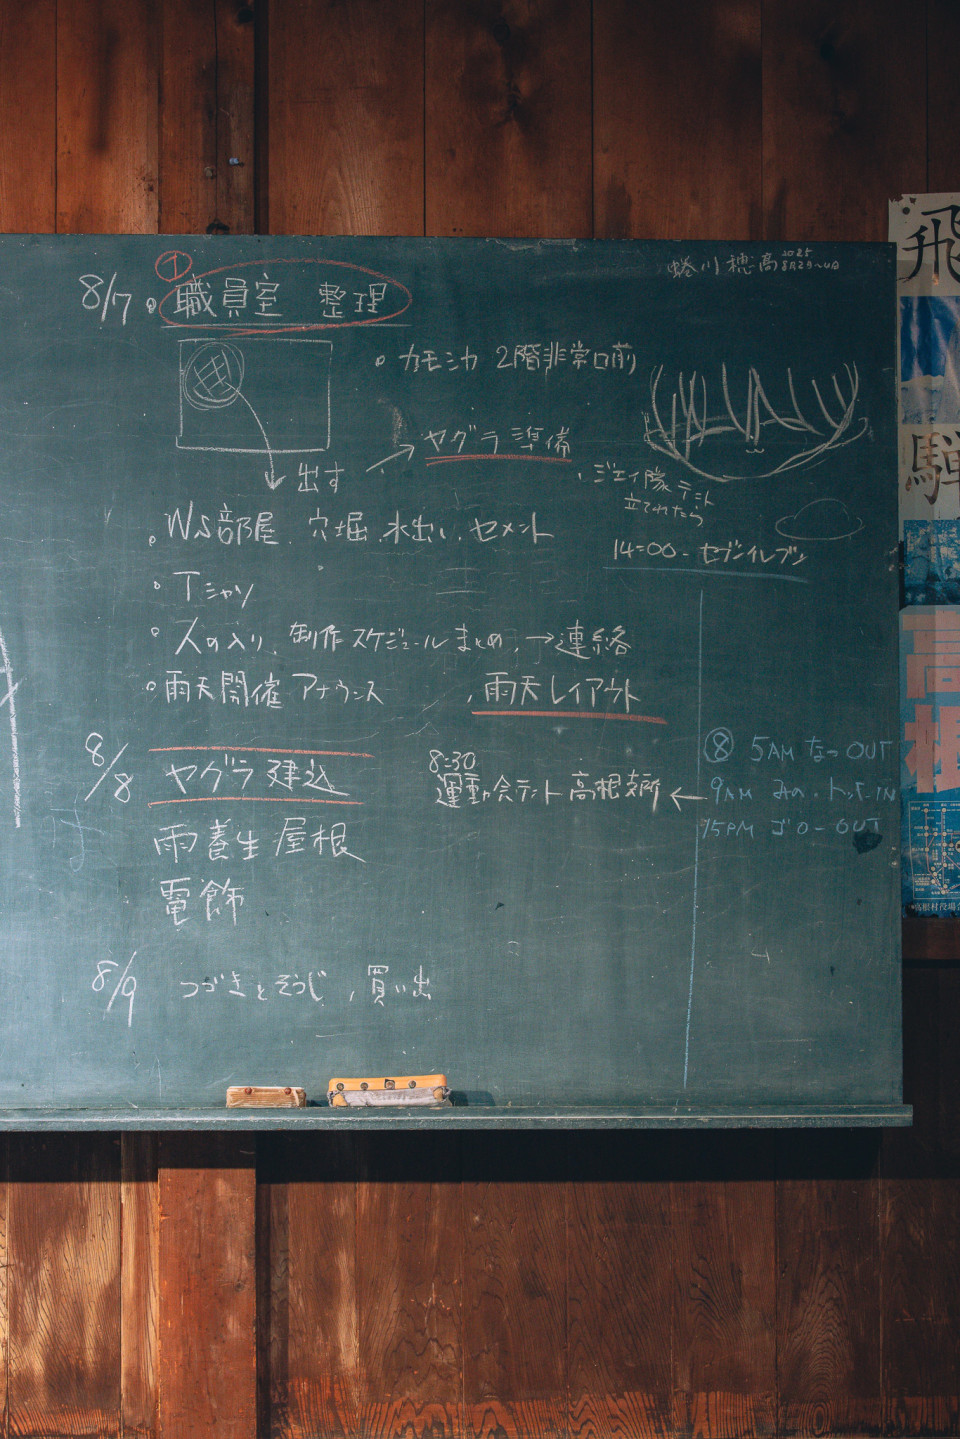 蜷川 穂高 2025
8月29〜
①
8/7 職員室 整理
カモシカ 2階非常口前
→ ヤグラ 準備
出す
ジェイ隊 テント
立てれたら
WS部屋、穴掘、水出し、セメント
14:00- セブンイレブン
Tシャツ
人の入り、制作スケジュールまとめ、→連絡
雨天開催 アナウンス 、雨天レイアウト
8/8 ヤグラ 建込
8:30
運動会テント 高根支所 ←
⑧ 5AM なつ OUT
9AM みの・トッドーIN
15PM ゴローOUT
雨養生 屋根
電飾
8/9 つづきとそうじ、買い出
飛
騨
高
根
高根村役場